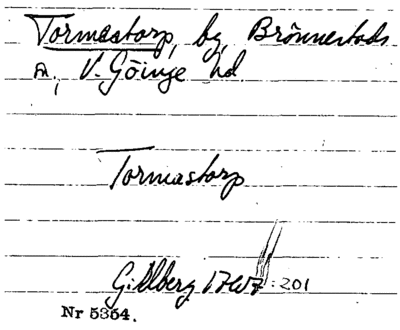 Tormastorp, by, Brönnestads
sn., V. Göinge hd
Tormastorp
Gillberg 1767: 201
Nr 5354.